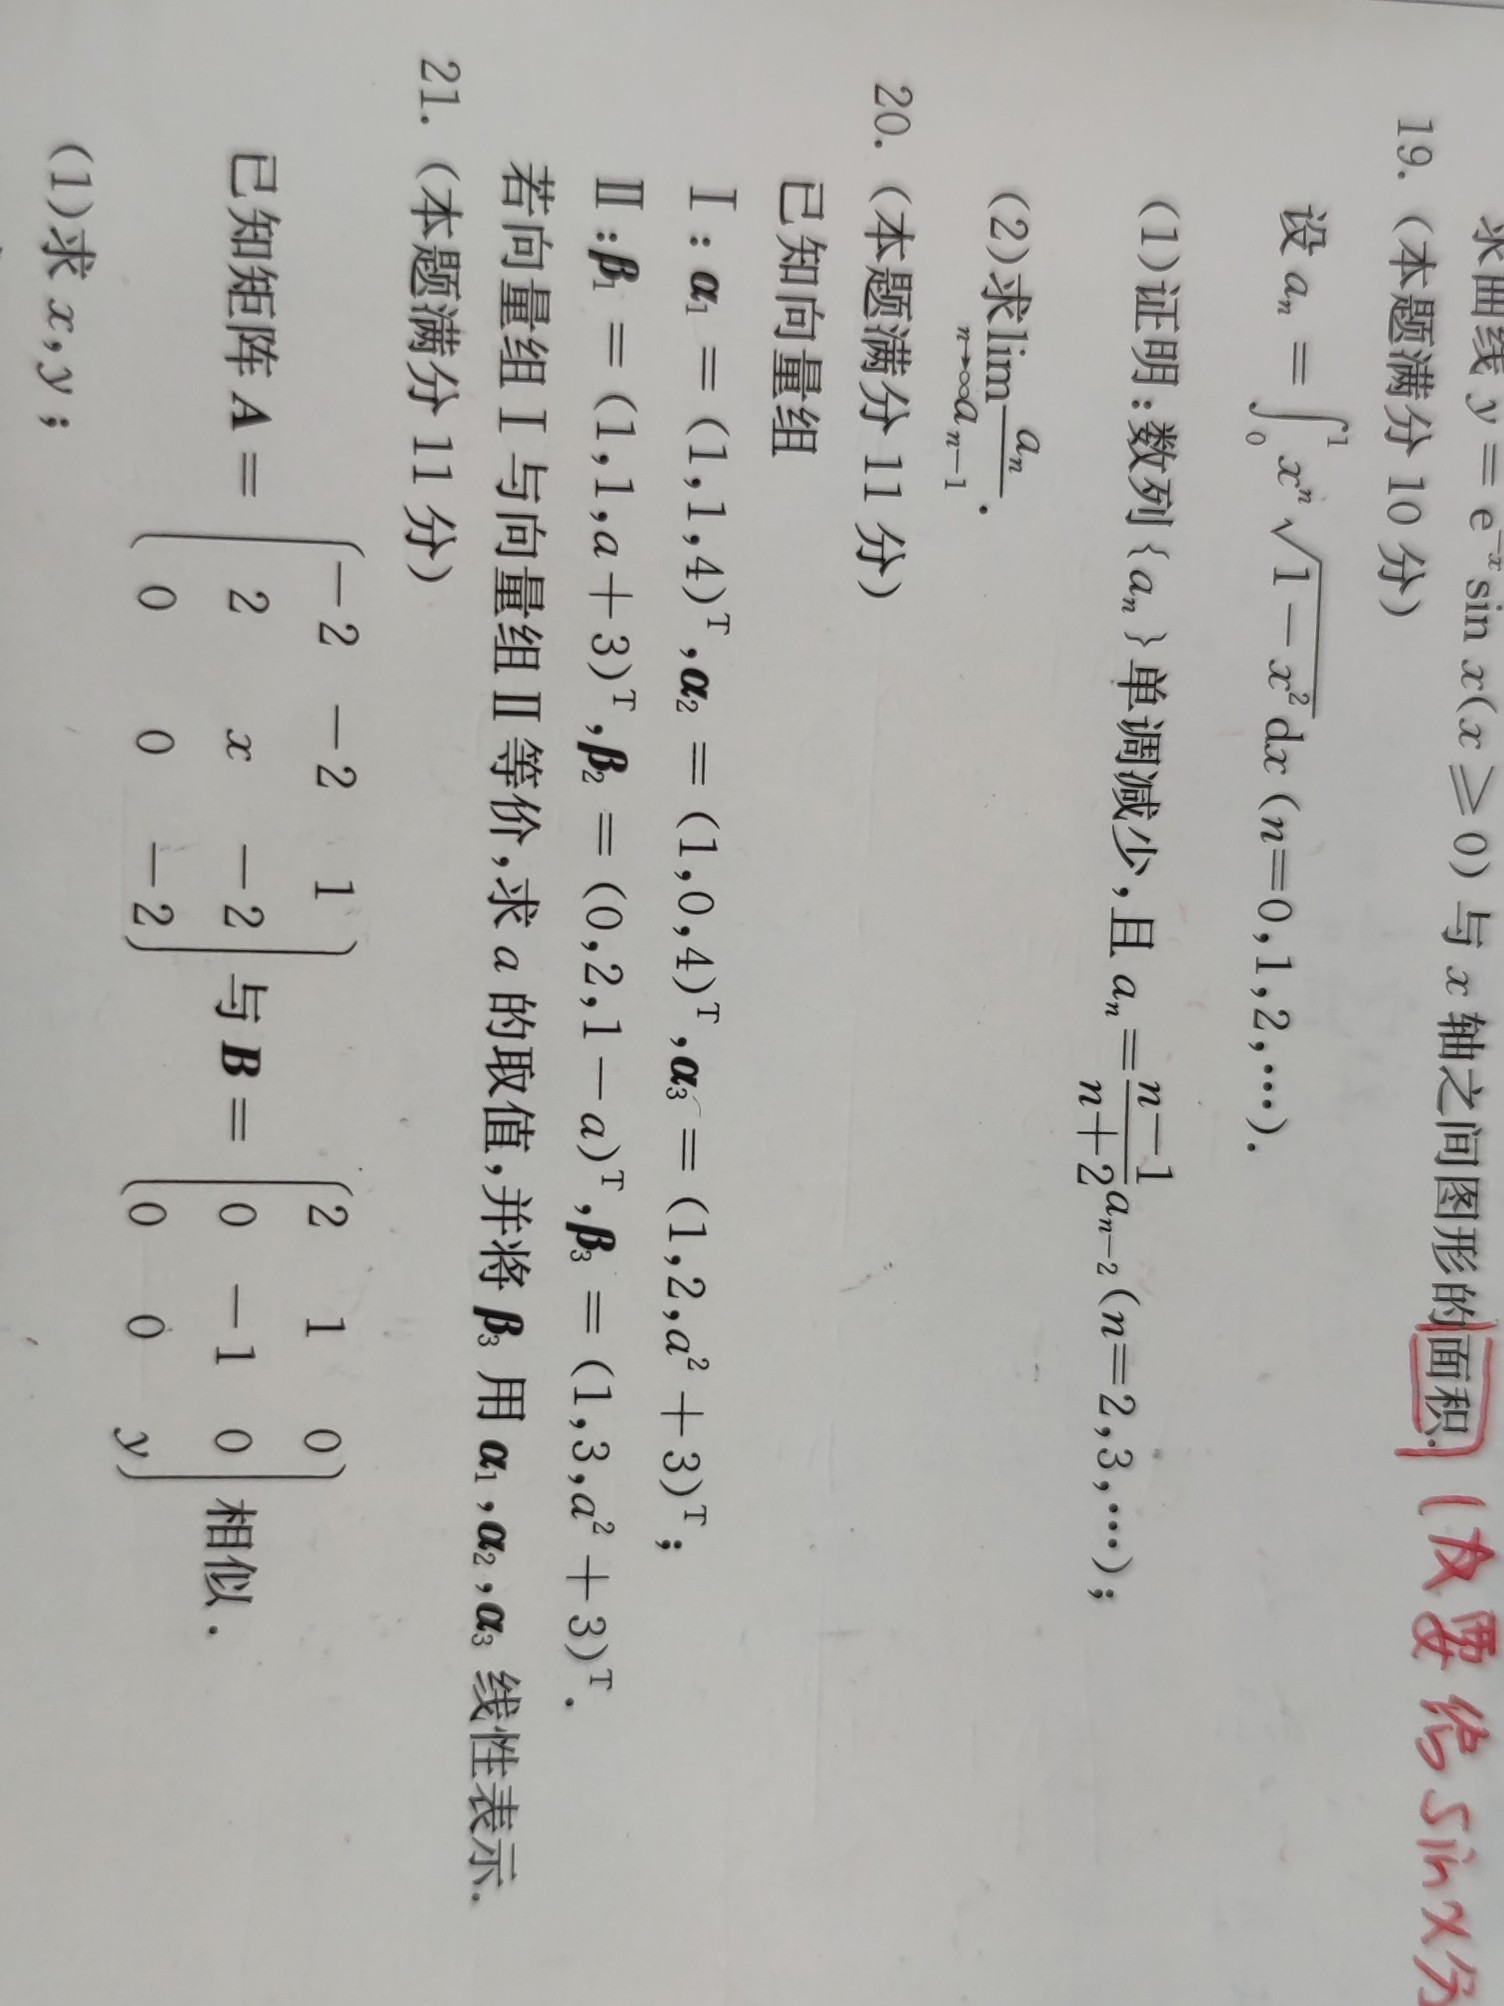 求曲线 y = e^{-x} sin x(x ⩾ 0) 与 x 轴之间图形的面积. (次要给 sin x 分
19. (本题满分 10 分)
设 a_n = ∫_0^1 x^n √(1-x^2) dx (n=0,1,2,⋯).
(1)证明:数列{a_n}单调减少,且 a_n = \frac{n-1}{n+2} a_{n-2} (n=2,3,⋯);
(2)求 lim_{n→∞} \frac{a_n}{a_{n-1}}.
20. (本题满分 11 分)
已知向量组
Ⅰ:α_1 = (1,1,4)^T, α_2 = (1,0,4)^T, α_3 = (1,2,a^2+3)^T;
Ⅱ:β_1 = (1,1,a+3)^T, β_2 = (0,2,1-a)^T, β_3 = (1,3,a^2+3)^T.
若向量组 Ⅰ 与向量组 Ⅱ 等价,求 a 的取值,并将 β_3 用 α_1,α_2,α_3 线性表示.
21. (本题满分 11 分)
已知矩阵 A = \begin{pmatrix} -2 & -2 & 1 \\ 2 & x & -2 \\ 0 & 0 & -2 \end{pmatrix} 与 B = \begin{pmatrix} 2 & 1 & 0 \\ 0 & -1 & 0 \\ 0 & 0 & y \end{pmatrix} 相似.
(1)求 x,y;